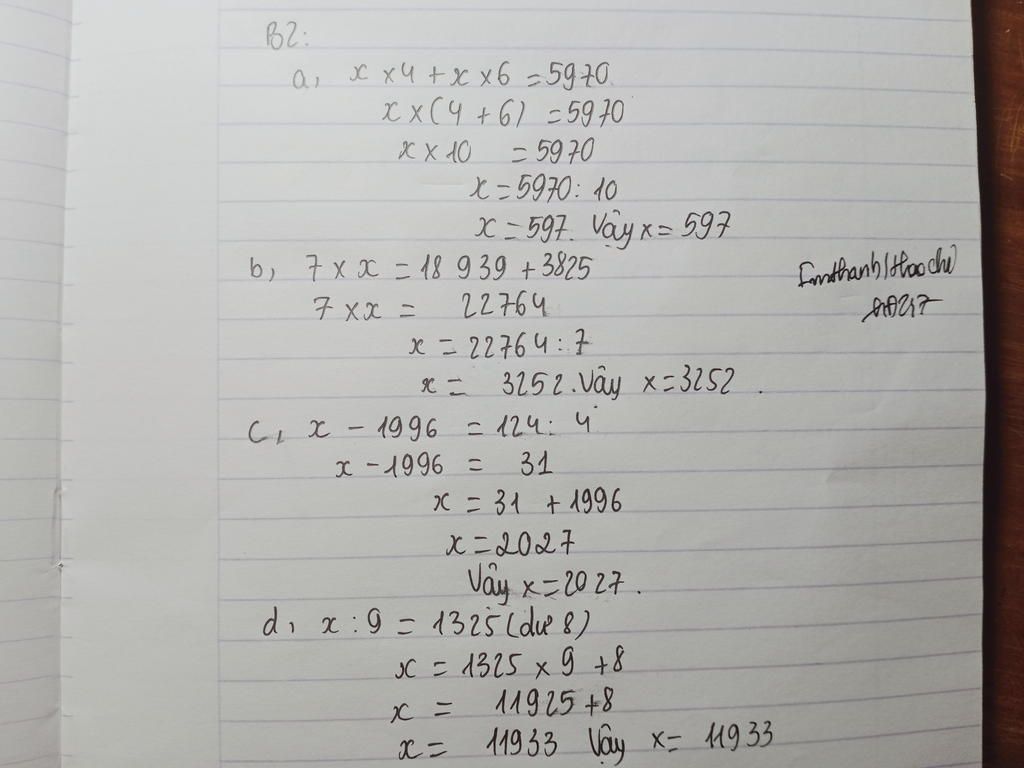 B2:
a, x × 4 + x × 6 = 5970
x × (4 + 6) = 5970
x × 10 = 5970
x = 5970 : 10
x = 597. Vậy x = 597
b, 7 × x = 18 939 + 3825
7 × x = 22764
x = 22764 : 7
x = 3252. Vậy x = 3252.
c, x - 1996 = 124 : 4
x - 1996 = 31
x = 31 + 1996
x = 2027
Vậy x = 2027.
d, x : 9 = 1325 (dư 8)
x = 1325 × 9 + 8
x = 11925 + 8
x = 11933 Vậy x = 11933